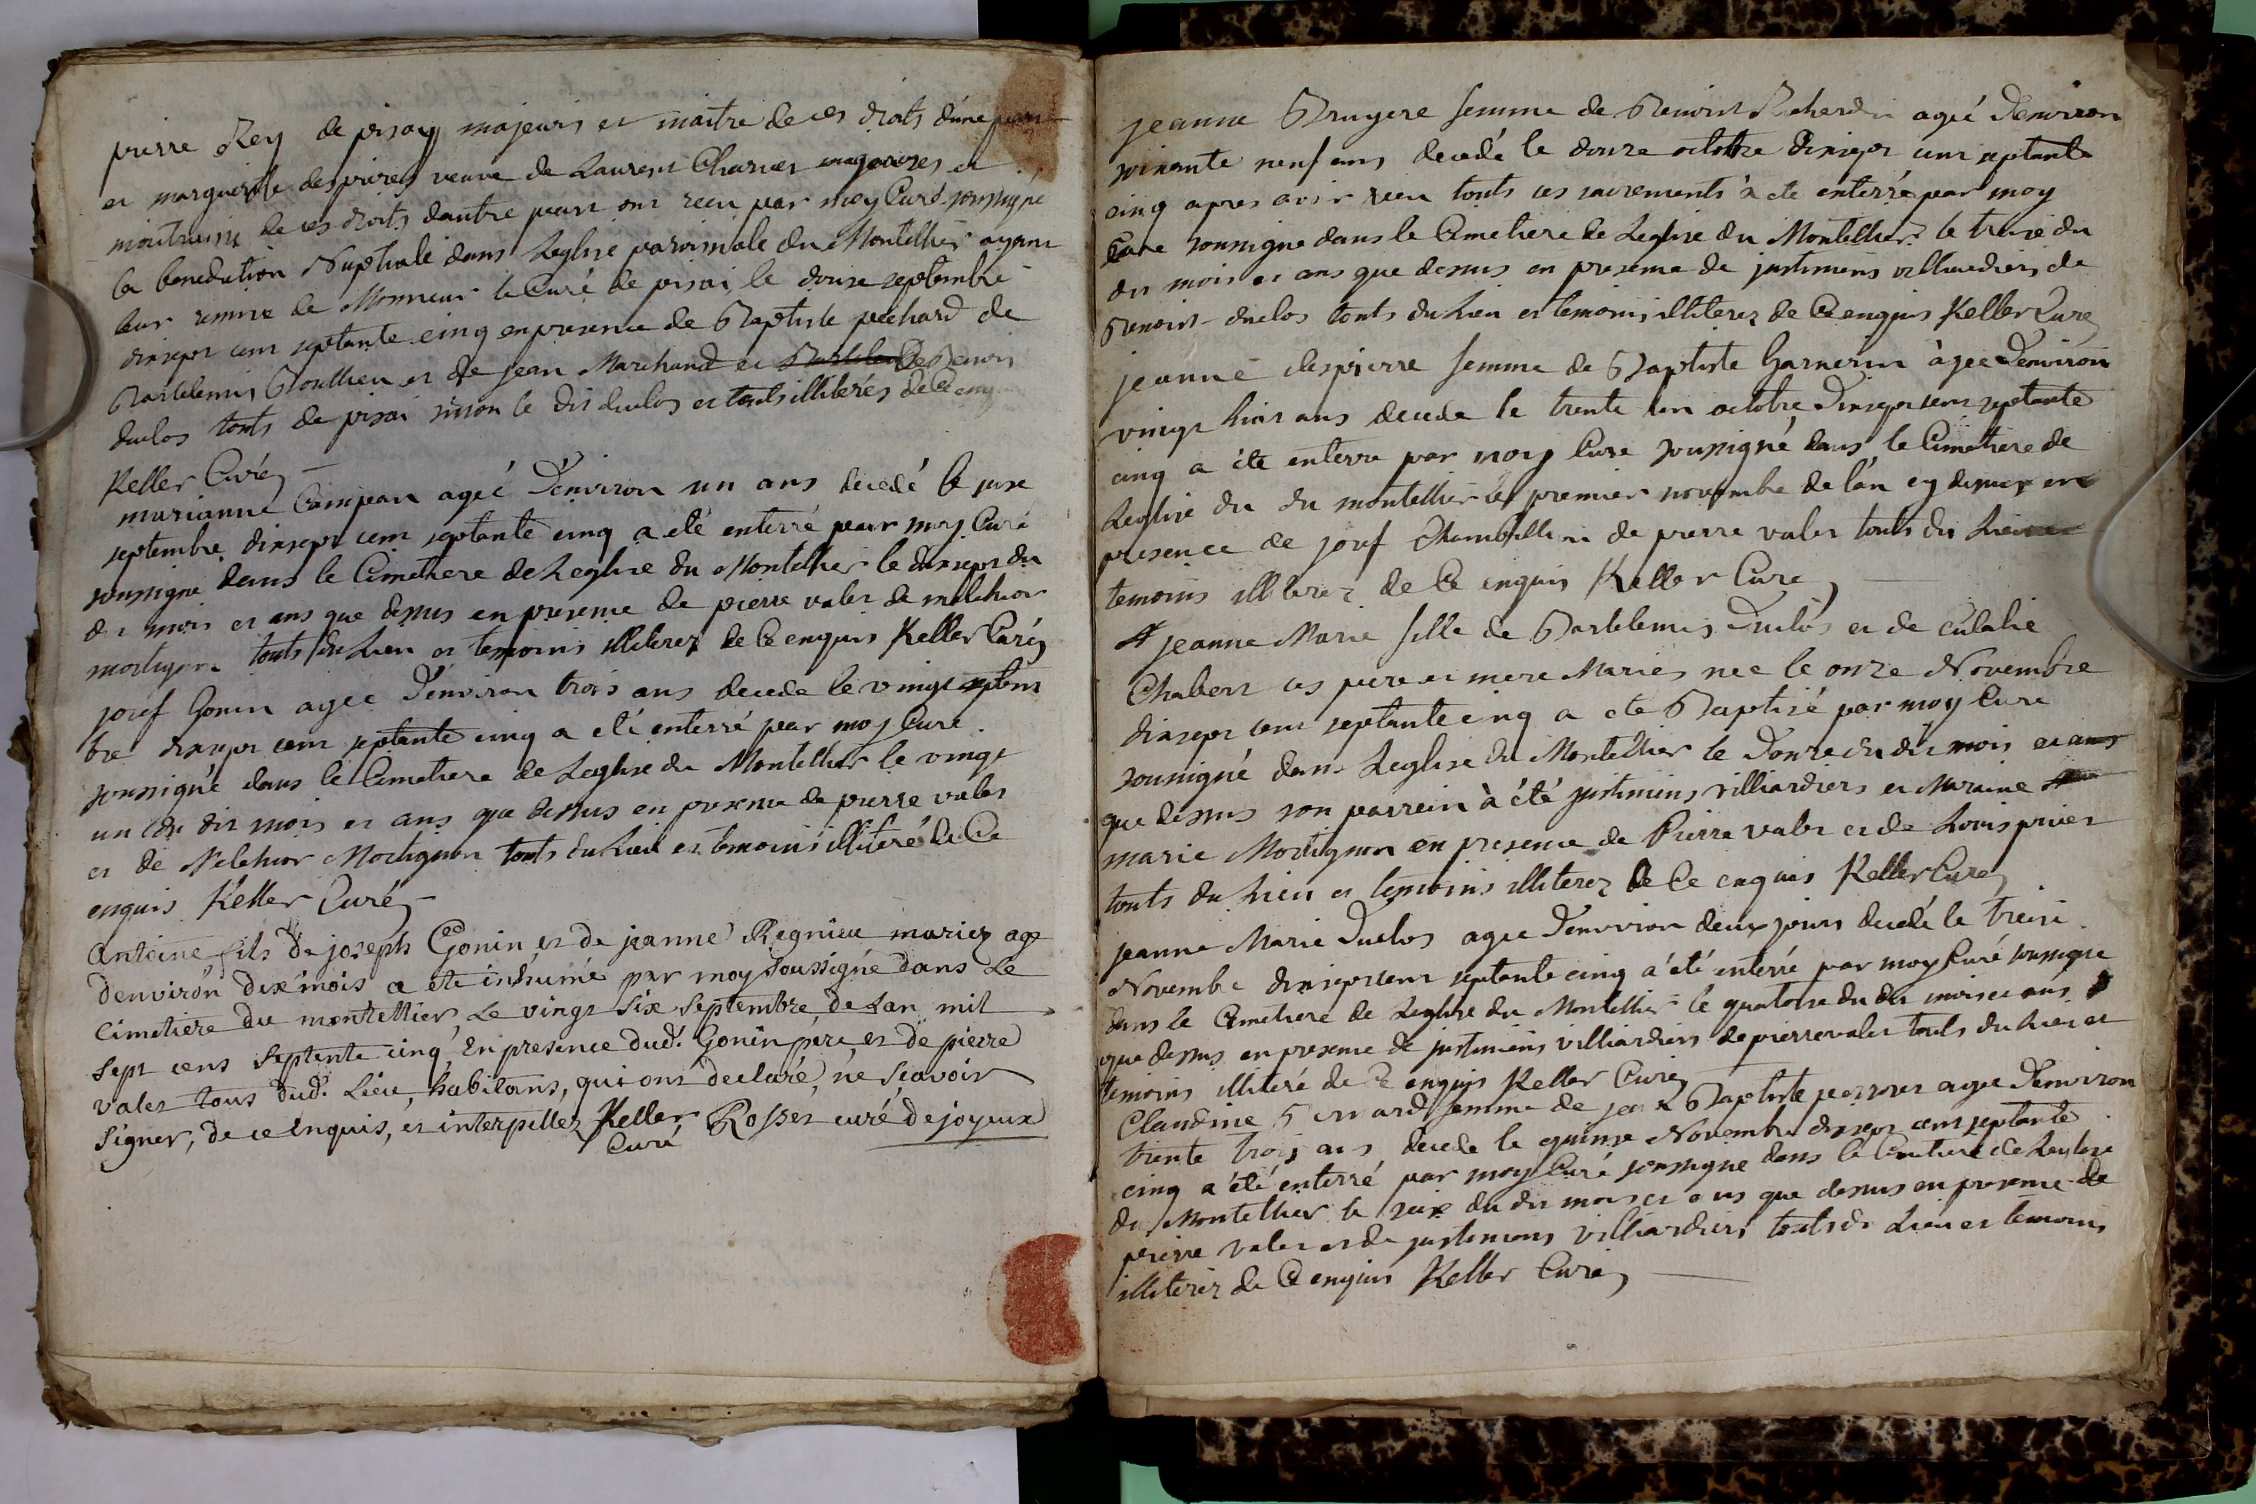 pierre Rey de pisay majeurs et maitre de ces droits d'une part
et marguerite despierres veuve de Laurent Charvet majeures et
maitraisse de ces droits dautre part ont recu par moy Curé soussigné
la benediction Nuptiale dans Leglise paroissiale du Montellier ayant
leur remise de Monsieur le Curé de pisai le douze septembre
dixsept cent septante cinq en presence de Baptiste pechard de
Bartelemis Boullieu et de jean Marchand et de Benoit
duclos touts de pisai sinon le dit duclos et touts illiterés de Ce enquis
Keller Curé
marianne Campean ageé D'environ un ans decedé le
septembre dixsept cent septante cinq a eté enterré par moy Curé
soussigné dans le Cimetiere de Leglise du Montellier le dixsept du
dit mois et ans que dessus en presence de pierre valet de melchior
mortignon touts du Lieu et temoins illiterez de Ce enquis Keller Curé
josef Gonin agee D'environ trois ans decede le vingt septem
bre dixsept cent septante cinq a eté enterré par moy Curé
soussigné dans le Cimetiere de Leglise du Montellier le vingt
un du dit mois et ans que dessus en presence de pierre valet
et de Melchior Mortignon touts du Lieu et temoins illiteré de Ce
enquis Keller Curé
Antoine fils de joseph Gonin et de jeanne Regnieu mariez age
d'environ dix mois a ete inhumé par moy soussigné dans Le
Cimetiere du montellier, Le vingt Six Septembre de Lan mil
Sept cens Septente cinq, En presence dud. Gonin pére, et de pierre
valet tous dud. Lieu, habitans, qui ont declaré, ne Scavoir
Signer, de ce Enquis, et interpellez Keller Rosset curé de joyeux
Curé
jeanne Bruyere femme de Benoist ageé D'environ
soixante neuf ans decedé le douze octobre dixsept cent septante
cinq apres avoir recu touts ces sacrements à ete enterré par moy
Cure soussigne dans le Cimetiere de Leglise du Montellier le treise du
dit mois et ans que dessus en presence de justiniens villiardiers de
Benoist duclos touts du Lieu et temoins illiterez de Ce enquis Keller Curé
jeanne despierre femme de Baptiste Garnerin àgee D'environ
vingt huit ans decede le trente un octobre Dixsept cent septante
cinq a été enterre par moy Cure soussigné dans le Cimetiere de
Leglise du du montellier le premier novembre de l'an cy dessus en
presence de josef de pierre valet touts du Lieu et
temoins illiterez de Ce enquis Keller Cure
jeanne Marie fille de Bartelemis Duclos et de Eulalie
Chabert ces pere et mere Mariés nee le onze Novembre
dixsept cent septante cinq a ete Baptisé par moy Cure
soussigné dans Leglise du Montellier le Douze du dit mois et ans
que dessus son parrein à été justiniens villiardiers et Maraine
marie Mortignon en presence de Pierre valet et de Louis privet
touts du Lieu et temoins illiterez de Ce enquis Keller Curé
jeanne Marie Duclos agee D'environ deux jours decedé le treise
Novembre dixsept cent septante cinq a été enterré par moy Curé soussigne
dans le Cimetiere de Leglise du Montellier le quatorse du dit mois et ans
que dessus en presence de justiniens villiardiers de pierre valet touts du Lieu et
temoins illiteré de Ce enquis Keller Curé
Claudine femme de jean Baptiste agee D'environ
trente trois ans decede le quinse Novembre dixsept cent septante
cinq a été enterré par moy Curé soussigne dans le Cimetiere de Leglise
du Montellier le seise du dit mois et ans que dessus en presence de
pierre valet et de justiniens villiardiers touts du Lieu et temoins
illiterez de Ce enquis Keller Curé